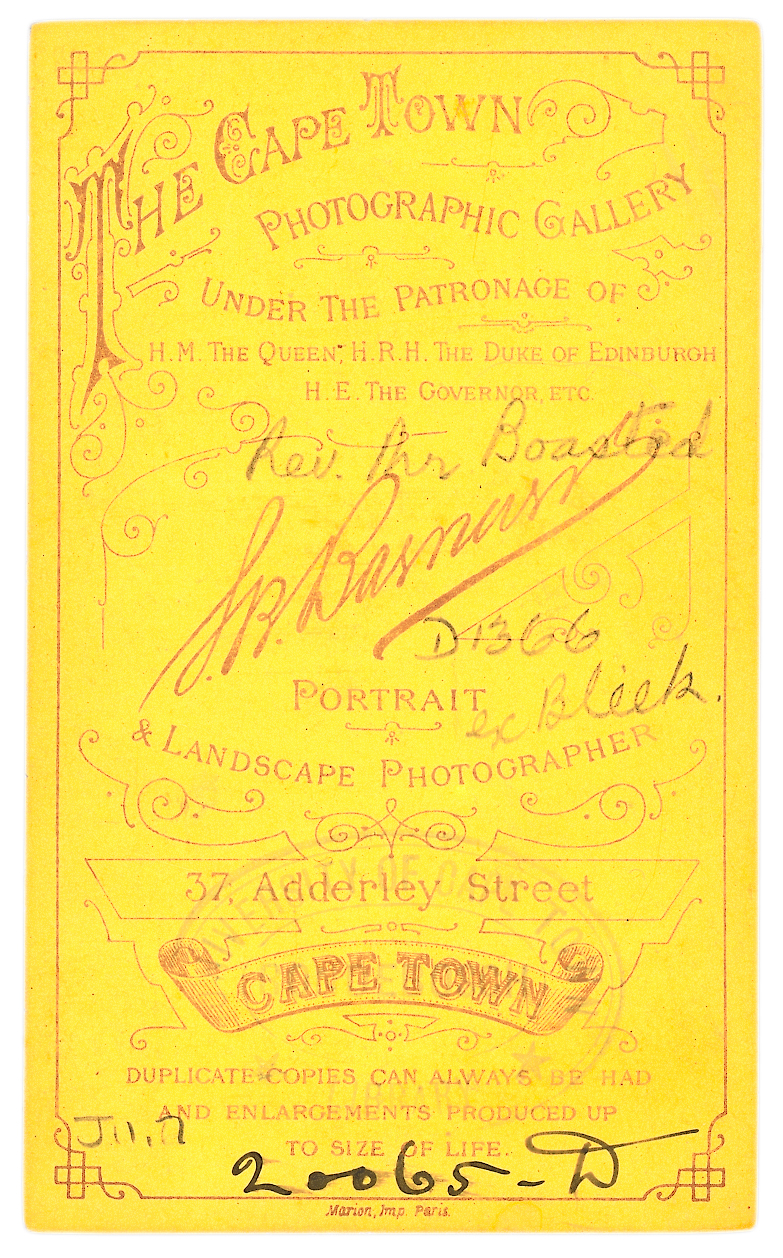 THE CAPE TOWN
PHOTOGRAPHIC GALLERY
UNDER THE PATRONAGE OF
H.M. THE QUEEN, H.R.H. THE DUKE OF EDINBURGH
H.E. THE GOVERNOR, ETC.
Rev.
S.B. Barnard
D1366
PORTRAIT
ex Bleek.
& LANDSCAPE PHOTOGRAPHER
37, Adderley Street
CAPE TOWN
DUPLICATE COPIES CAN ALWAYS BE HAD
AND ENLARGEMENTS PRODUCED UP
TO SIZE OF LIFE.
20065-D
Marion, Imp. Paris.